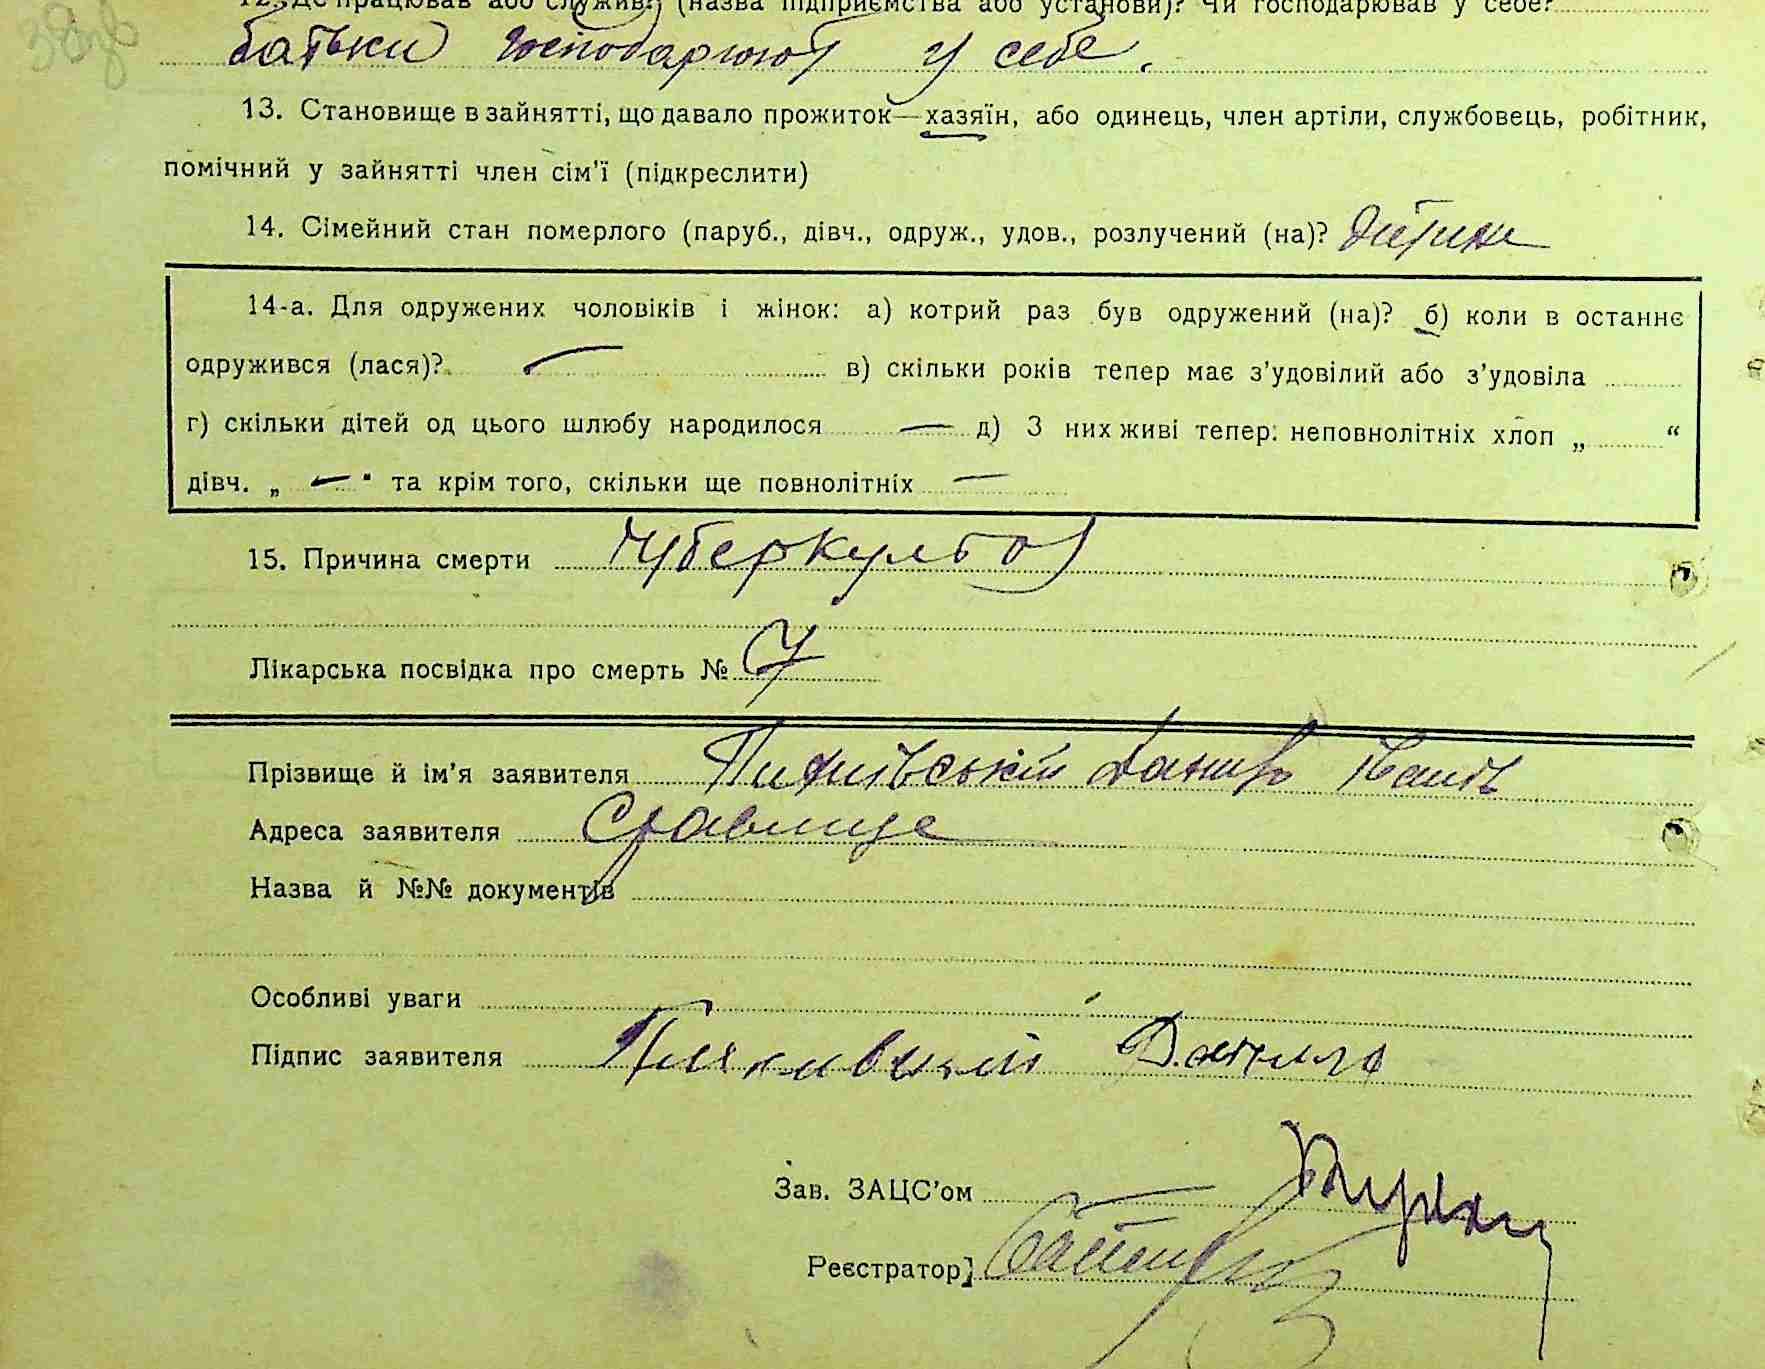 12. Де працював або служив (назва підприємства або установи)? Чи господарював у себе?
батьки господарюют у себе.
13. Становище в зайнятті, що давало прожиток—хазяїн, або одинець, член артіли, службовець, робітник,
помічний у зайнятті член сім'ї (підкреслити)
14. Сімейний стан померлого (паруб., дівч., одруж., удов., розлучений (на)? дитина
14-а. Для одружених чоловіків і жінок: а) котрий раз був одружений (на)? б) коли в останнє
одружився (лася)? — в) скільки років тепер має з'удовілий або з'удовіла
г) скільки дітей од цього шлюбу народилося — д) З них живі тепер: неповнолітніх хлоп „ “
дівч. „ — " та крім того, скільки ще повнолітніх —
15. Причина смерти туберкульоз
Лікарська посвідка про смерть № 7
Прізвище й ім'я заявителя Данило
Адреса заявителя
Назва й №№ документів
Особливі уваги
Підпис заявителя Данило
Зав. ЗАЦС'ом
Реєстратор